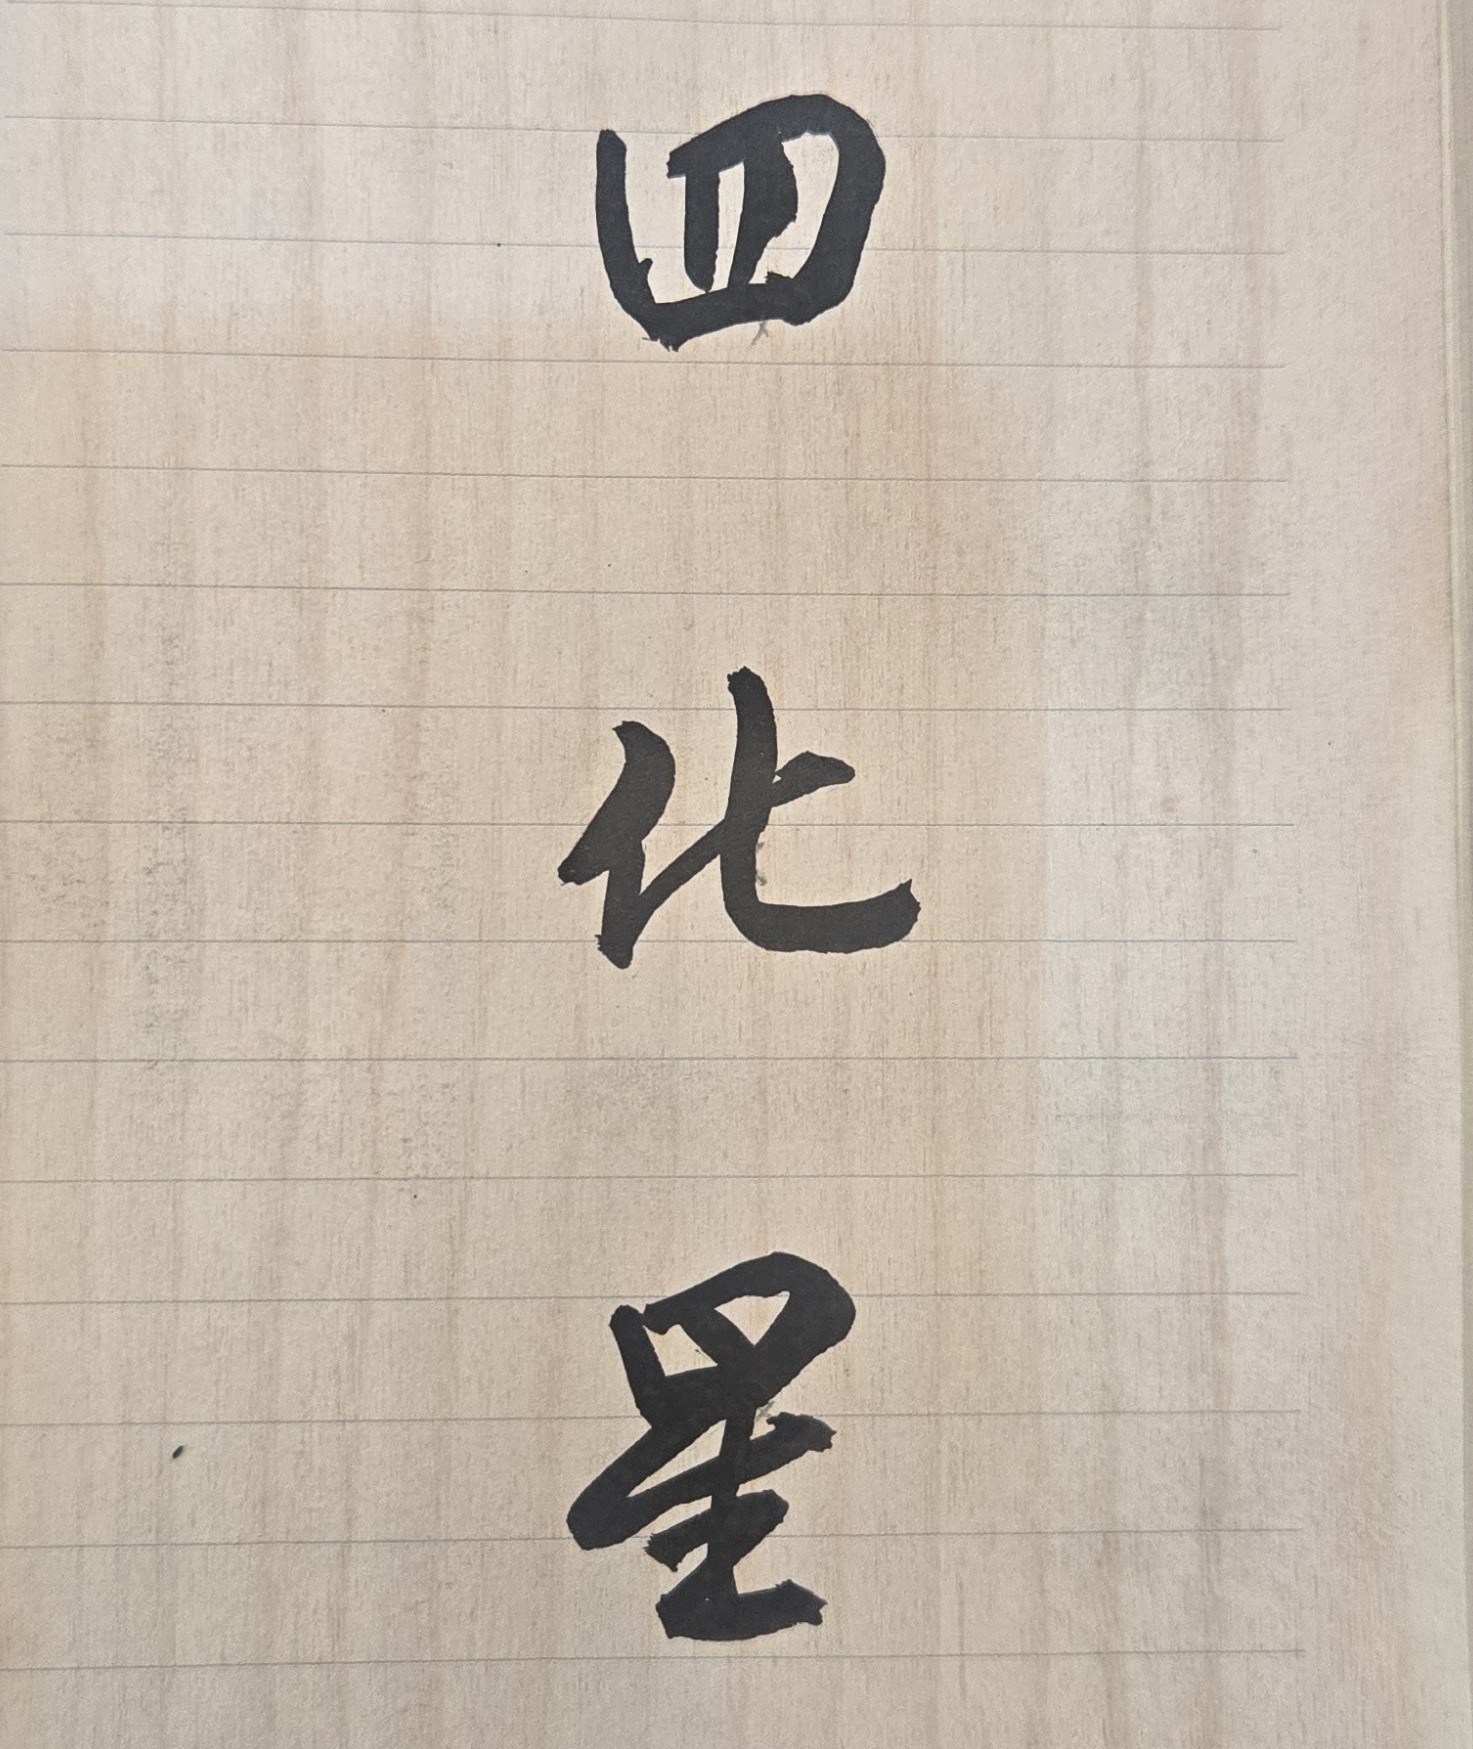 四化星